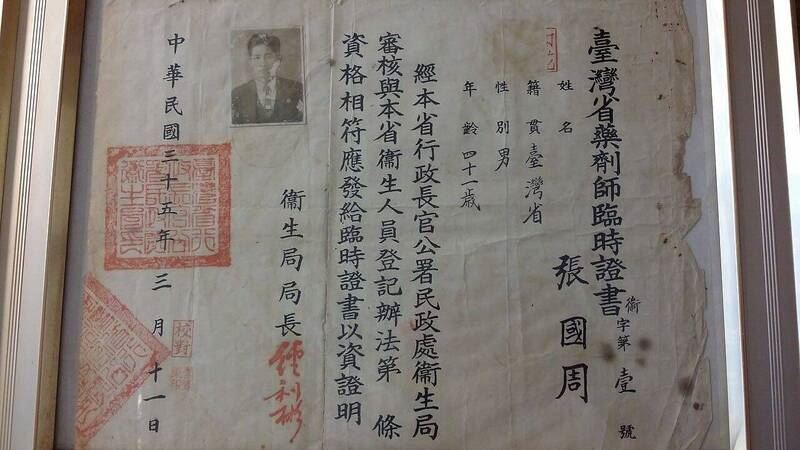 臺灣省藥劑師臨時證書
衛字第壹號
姓名 張國周
籍貫臺灣省
性別男
年齡四十一歲
經本省行政長官公署民政處衞生局
審核與本省衞生人員登記辦法第 條
資格相符應發給臨時證書以資證明
衞生局局長 經利彬
中華民國三十五年三月十一日
校對